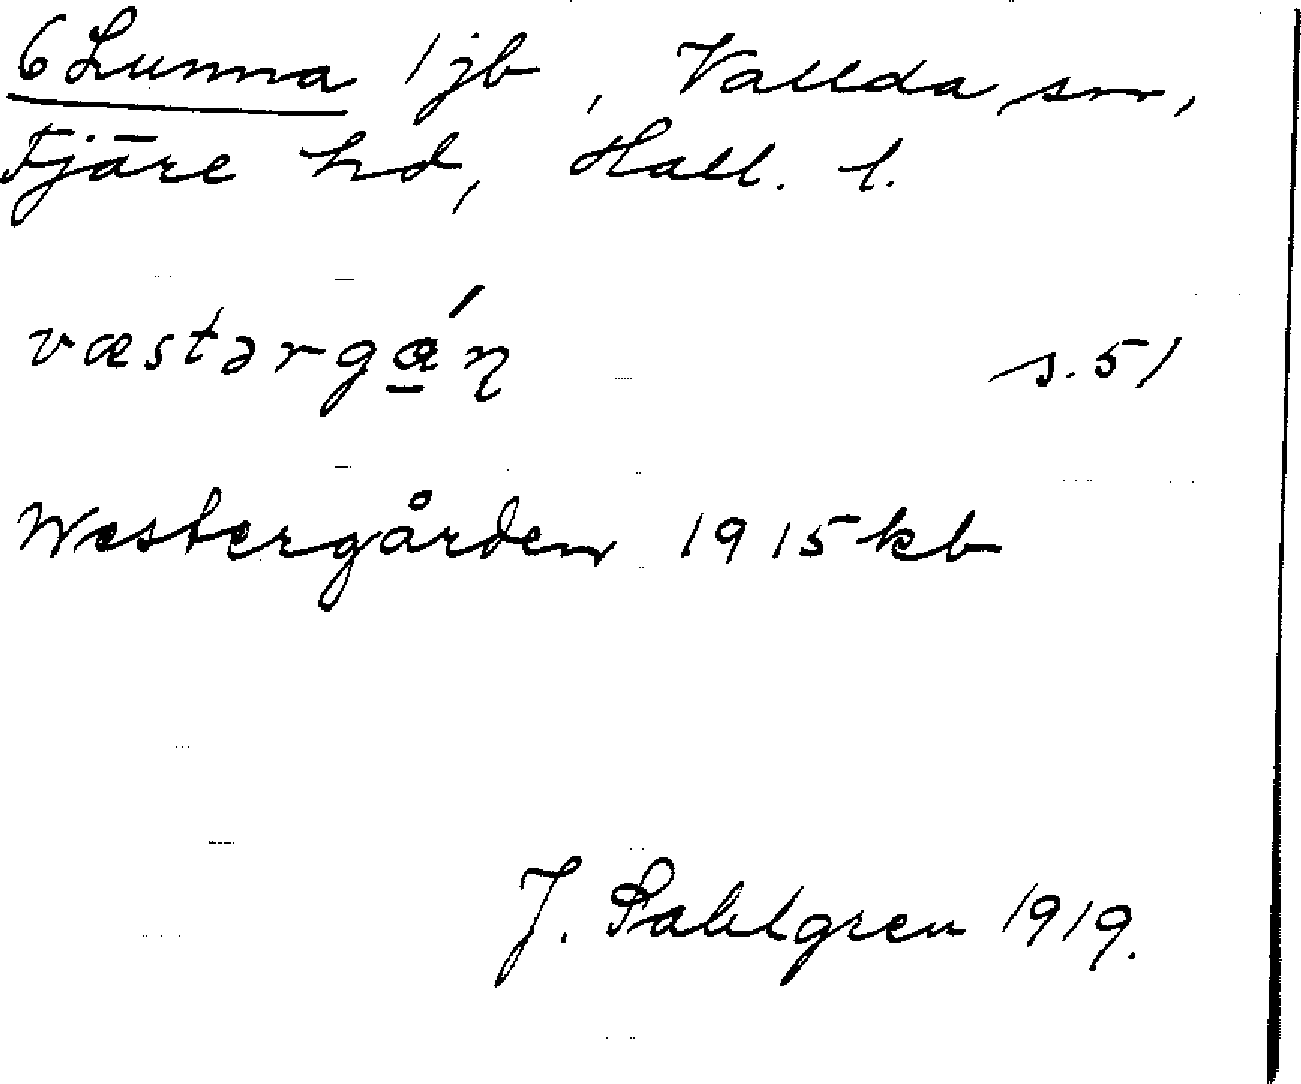 6 Lunna 1 jb, Vallda sn,
Fjäre hd, Hall. l.
væstərgá̱ɳ s. 51
Westergården 1915 kb
J. Sahlgren 1919.